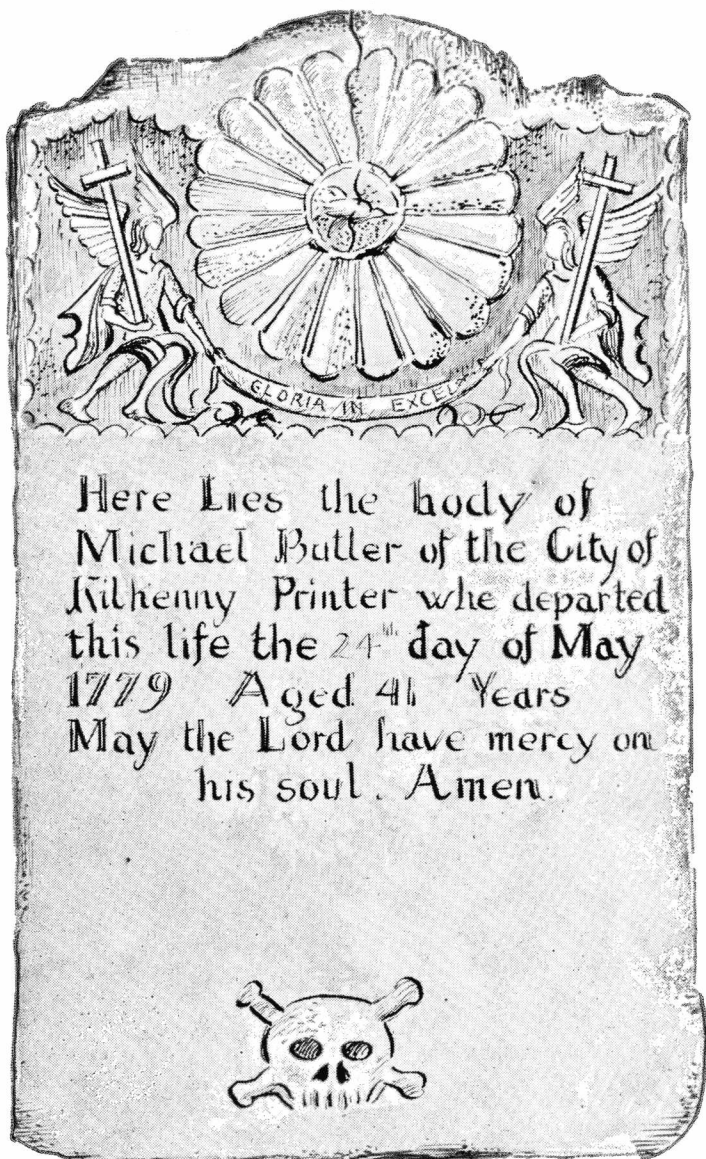 GLORIA IN EXCEL
Here Lies the body of
Michael Butler of the City of
Kilkenny Printer who departed
this life the 24th day of May
1779 Aged 41 Years
May the Lord have mercy on
his soul. Amen.